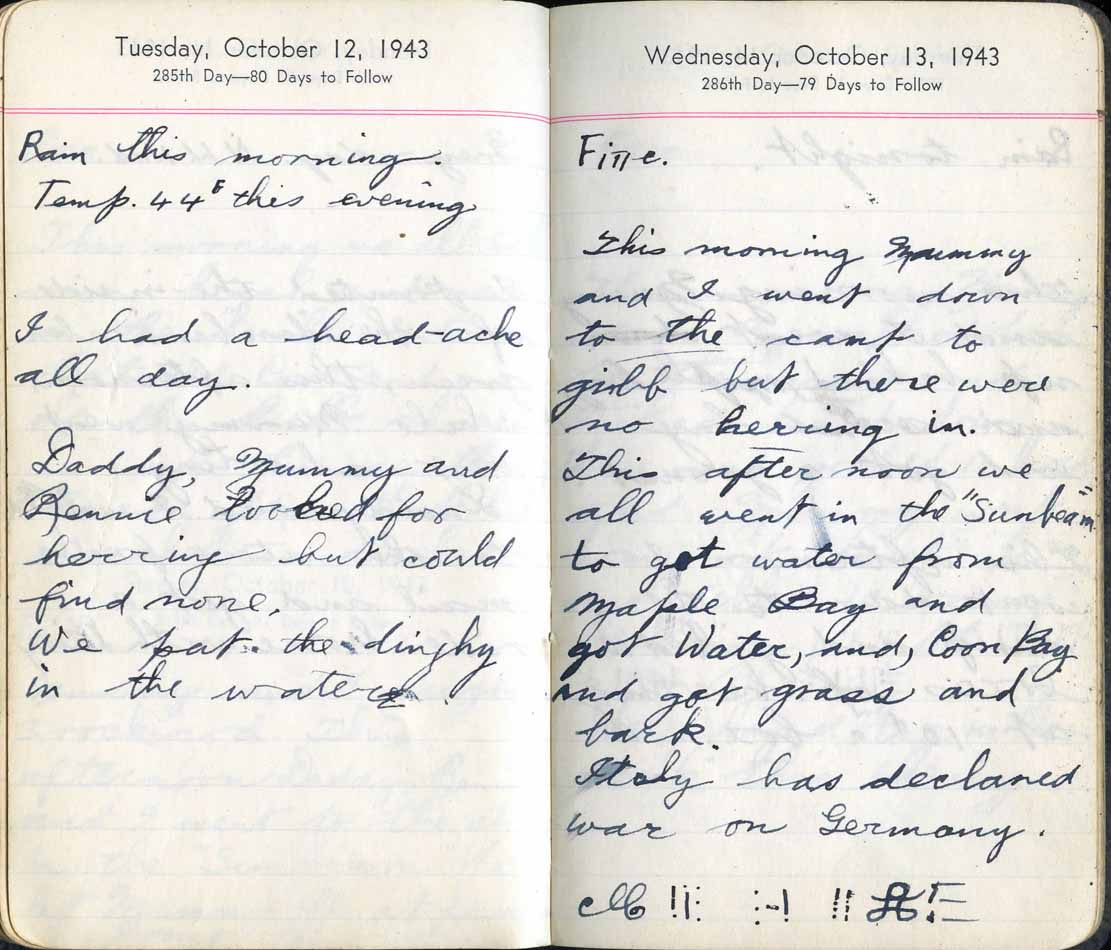 Tuesday, October 12, 1943
285th Day—80 Days to Follow
Rain this morning.
Temp. 44°F this evening
I had a head-ache
all day.
Daddy, Mummy and
Rennie looked for
herring but could
find none.
We pat. the dinghy
in the water
Wednesday, October 13, 1943
286th Day—79 Days to Follow
Fine.
This morning Mummy
and I went down
to the camp to
but there were
no herring in.
This afternoon we
all went in the "Sunbeam"
to get water from
Maple Bay and
got Water, and, Coon Bay
and got grass and
bark.
Italy has declared
war on Germany.